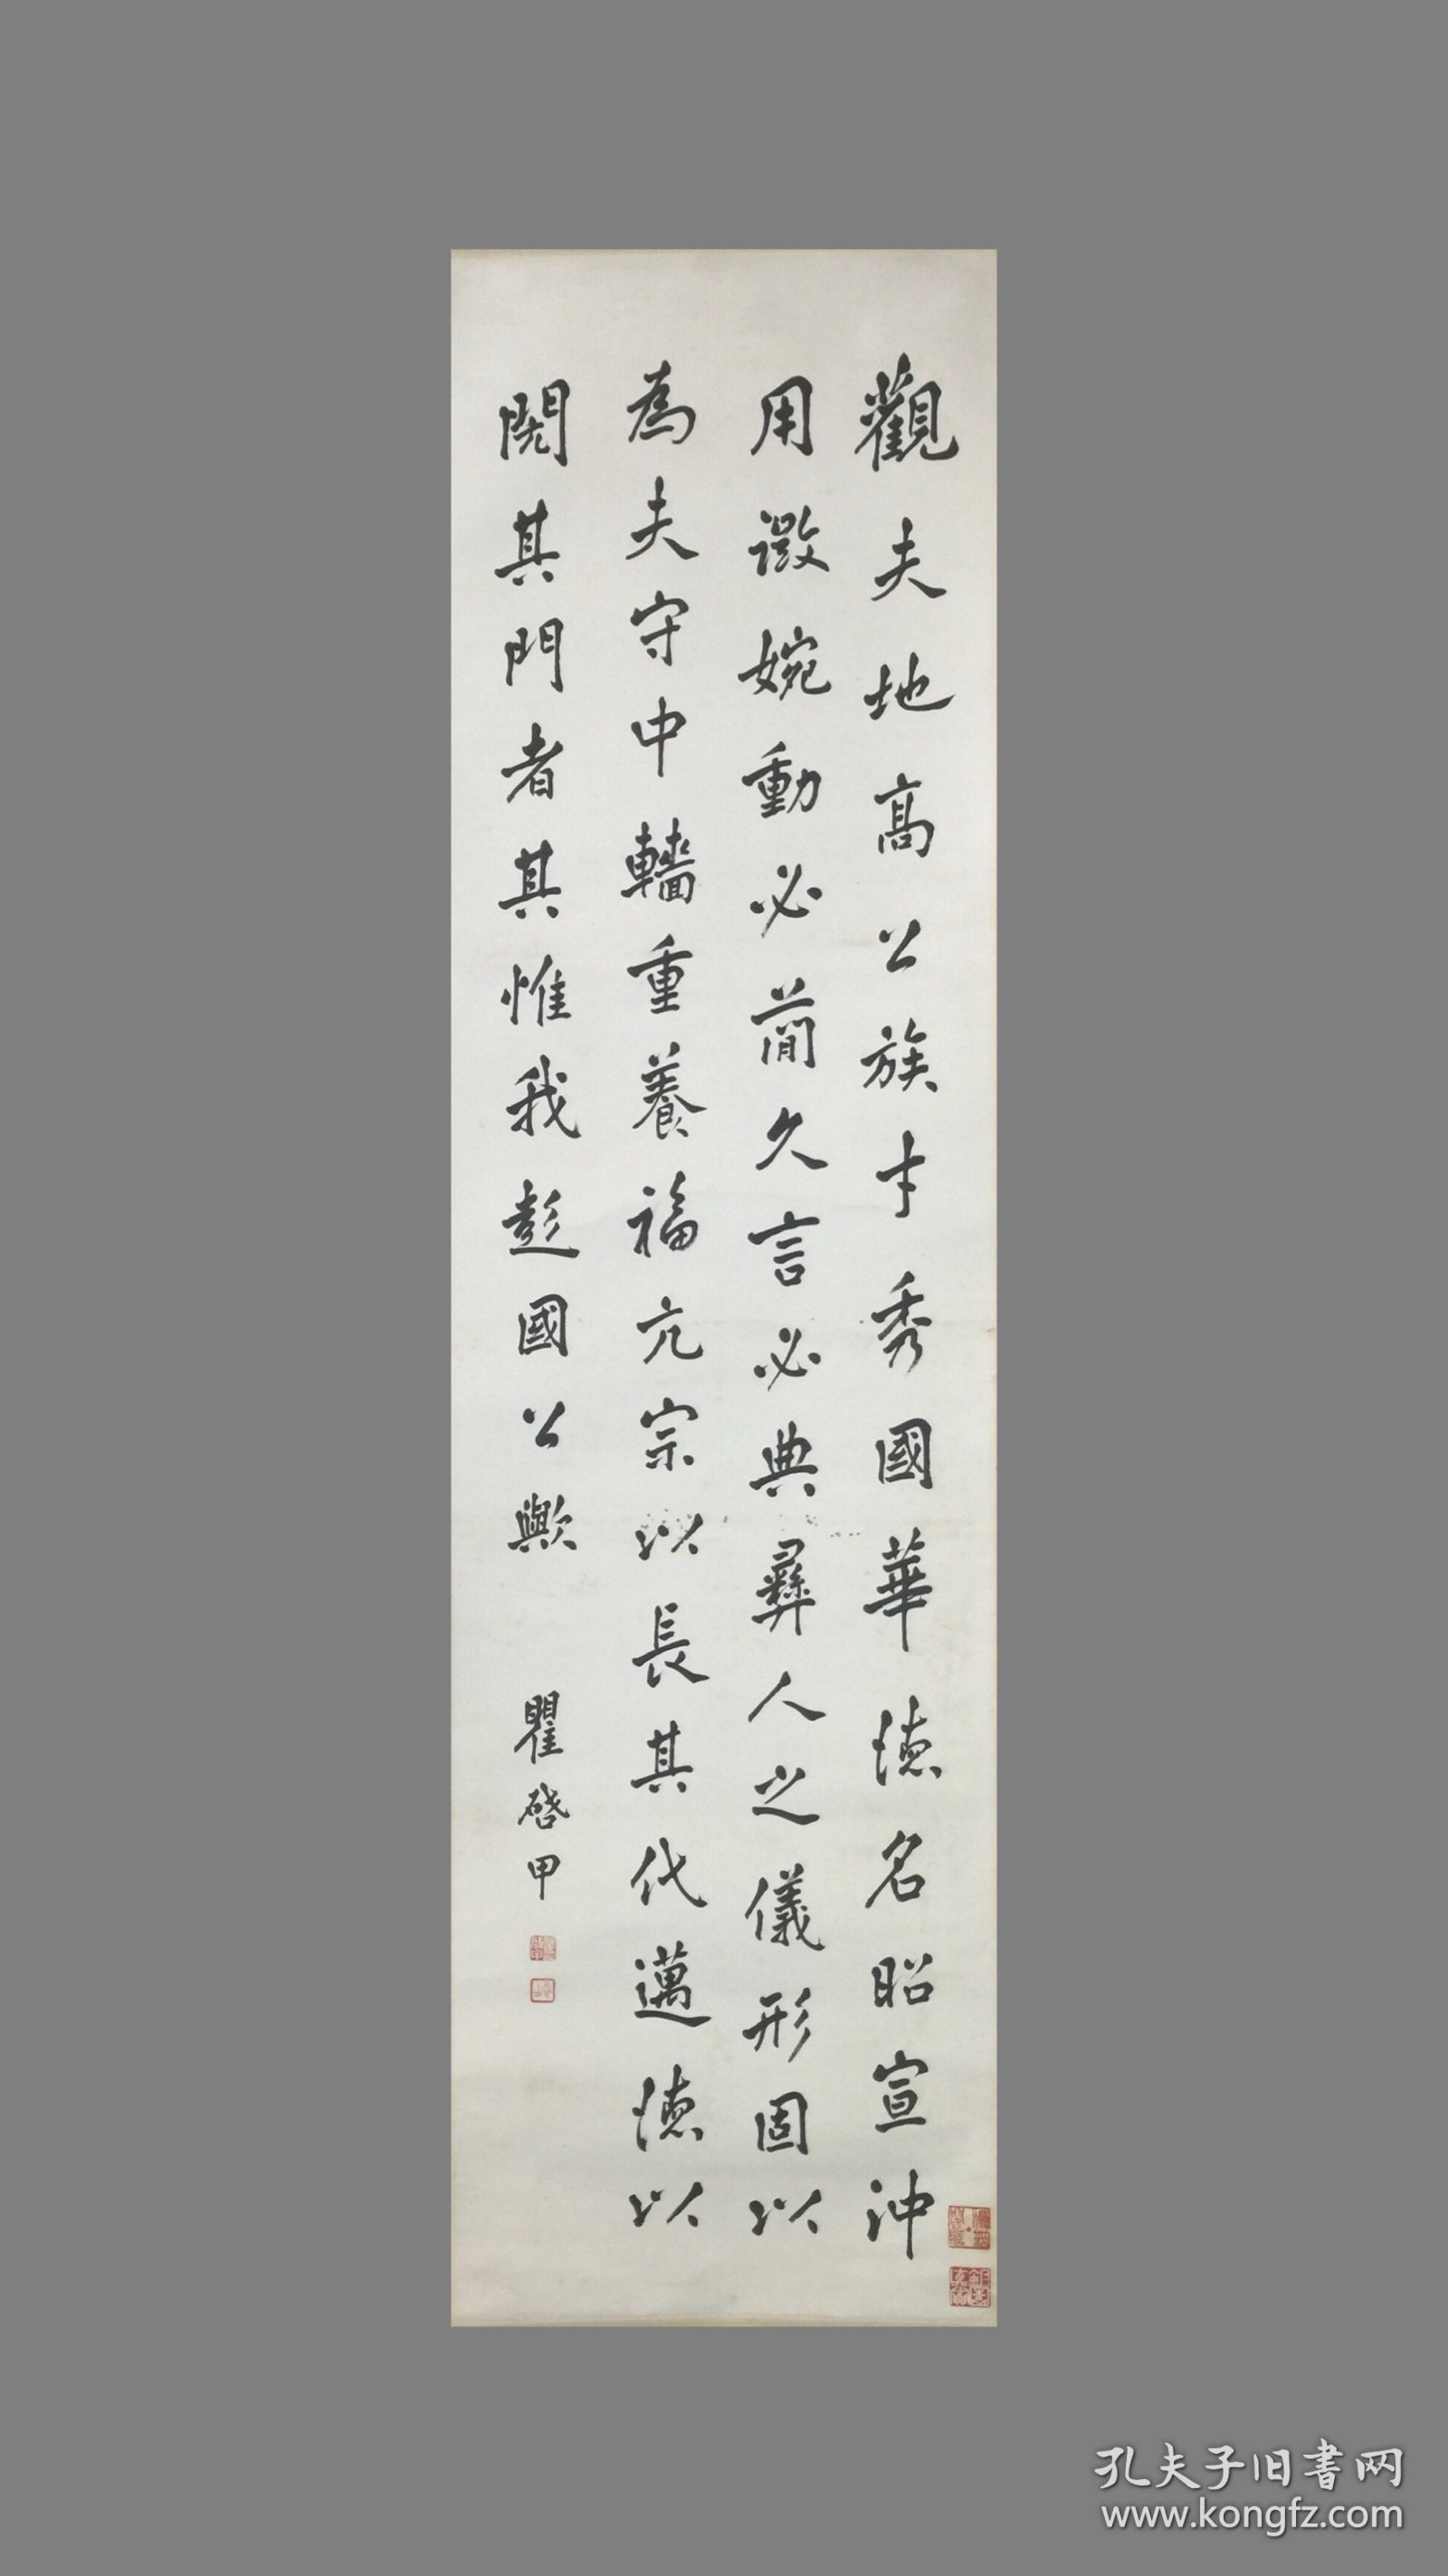 觀夫地高公族才秀國華德名昭宣沖
用微婉動必簡久言必典彝人之儀形固以
為夫守中輜重養福亢宗以長其代邁德以
閱其門者其惟我彭國公歟
瞿啓甲
孔夫子旧书网
www.kongfz.com